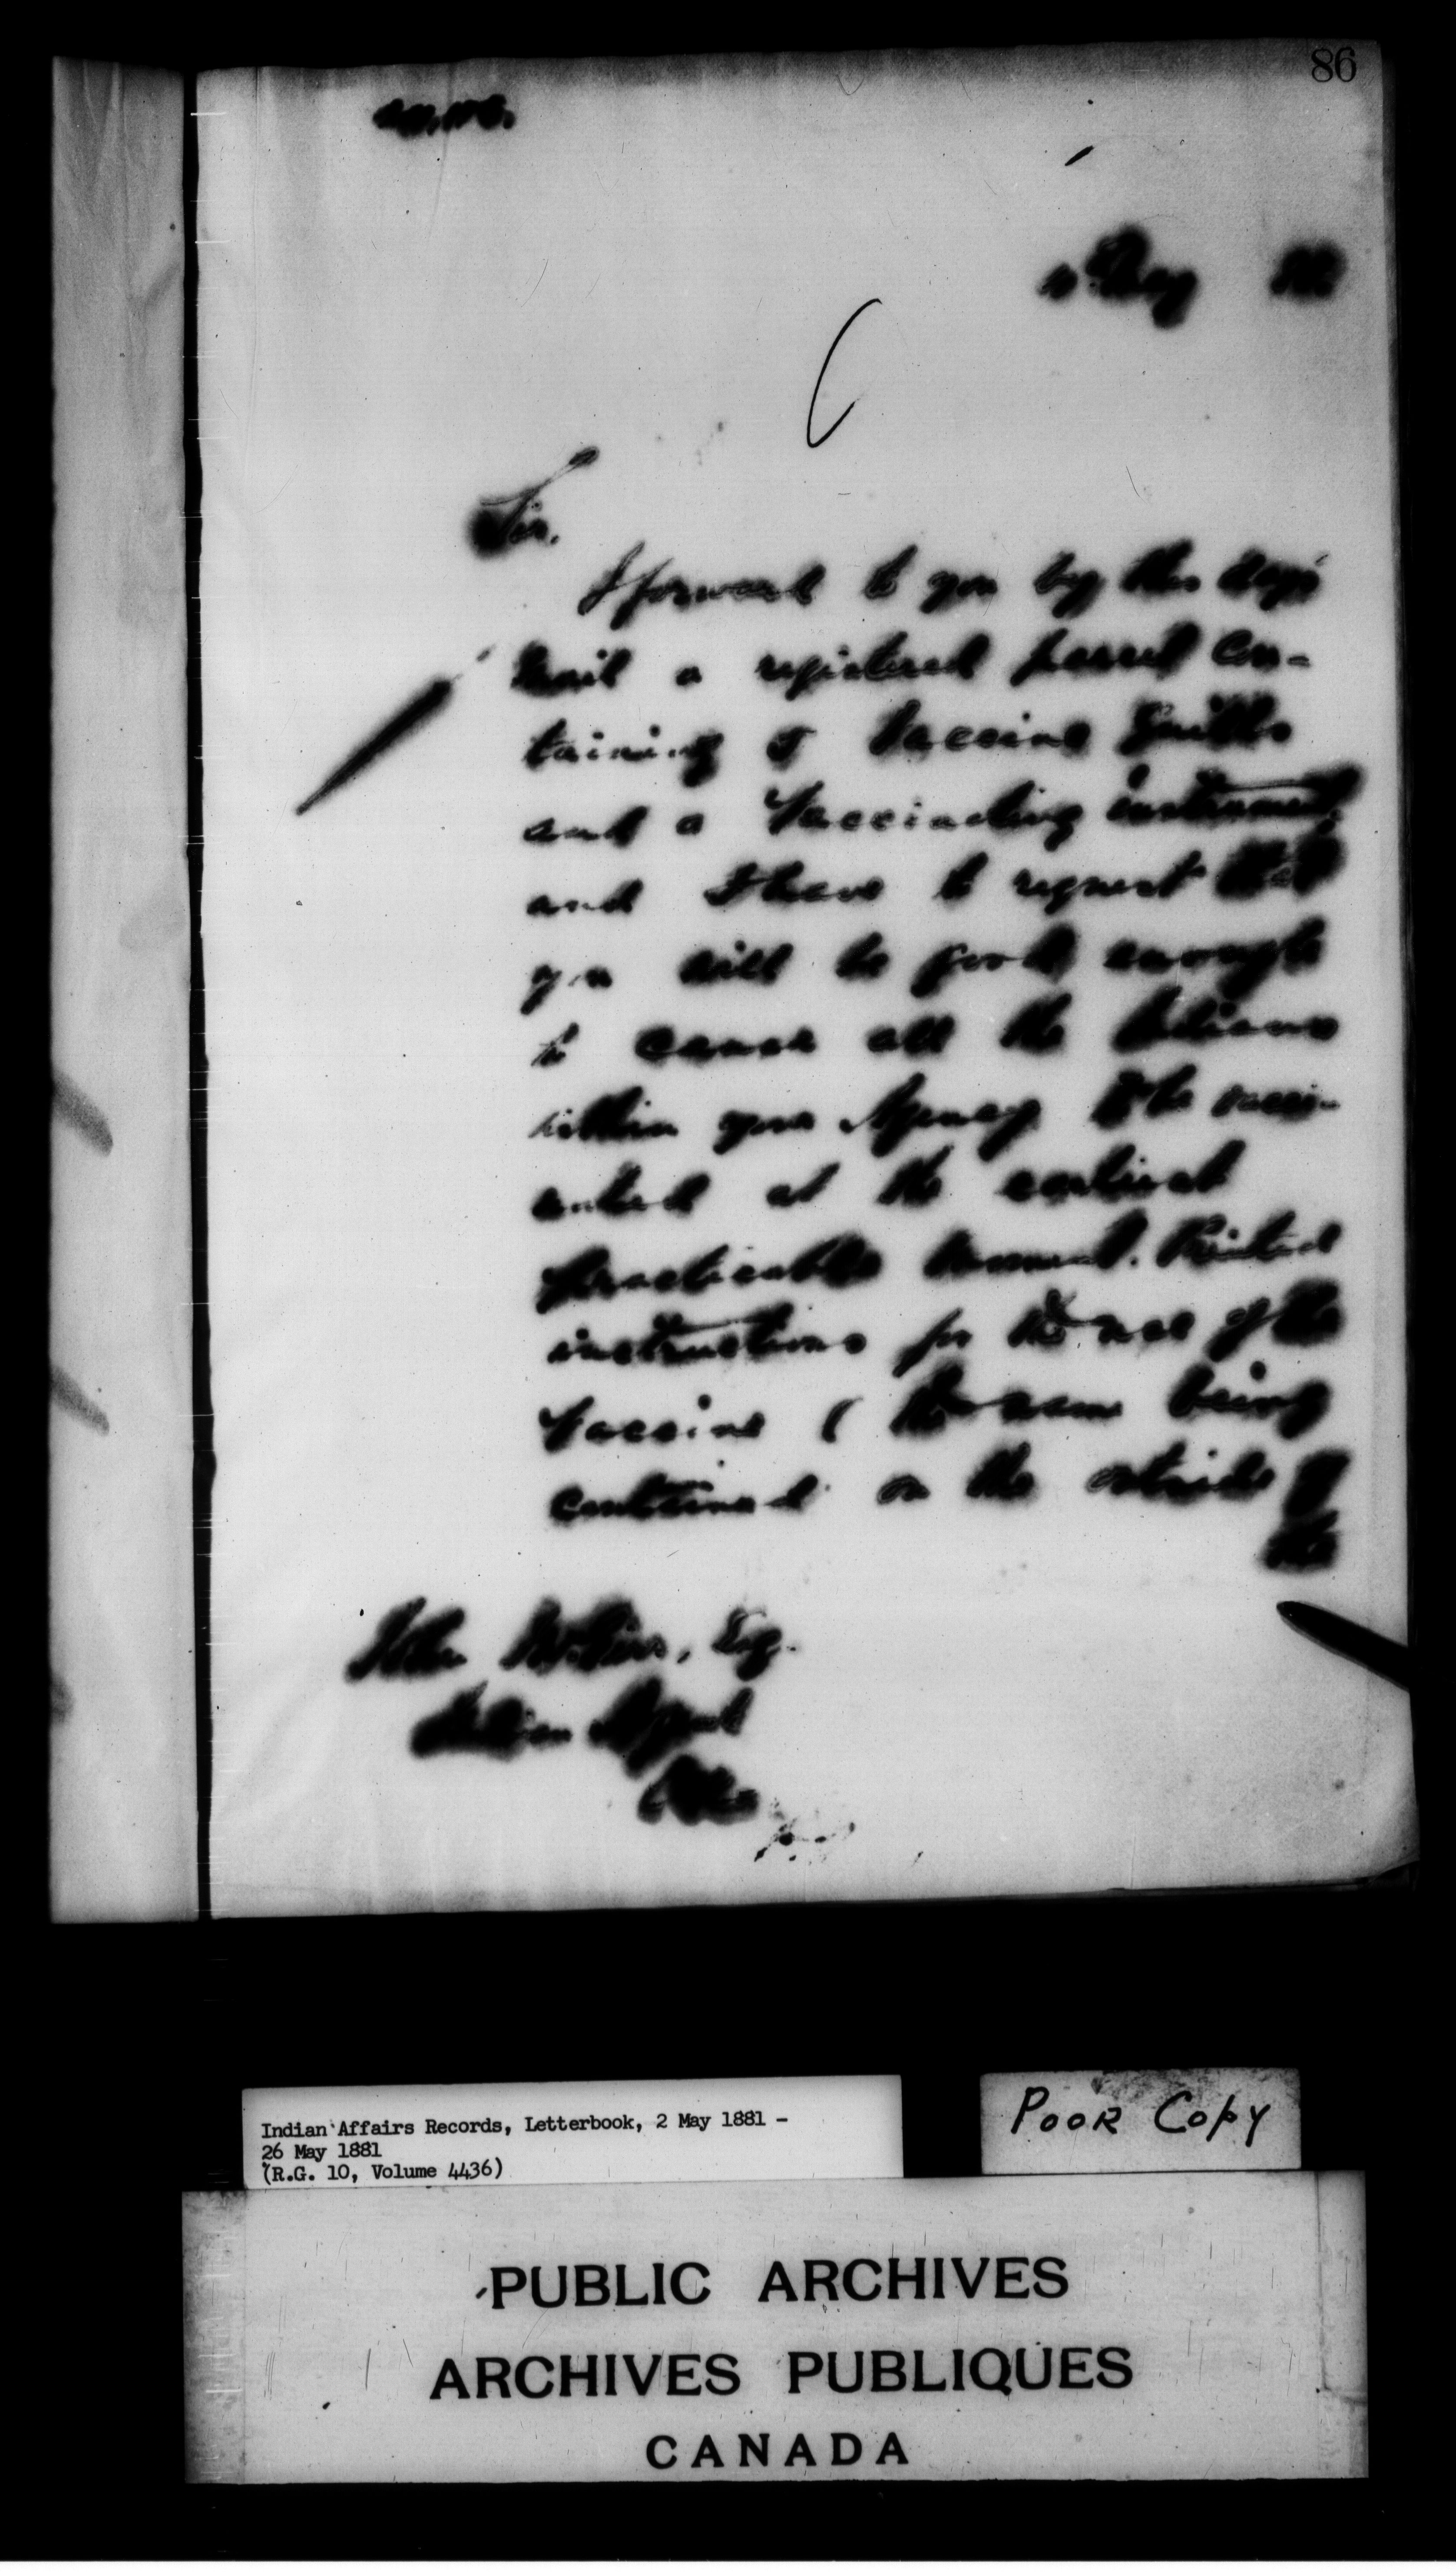 86
May 81
Sir,
I forward to you by this day's
mail a registered parcel con-
taining 5 Vaccine Quills
and a Vaccinating instrument,
and I have to request that
you will be good enough
to cause all the Indians
within your Agency to be vacci-
nated at the earliest
practicable moment. Printed
instructions for the use of the
Vaccine (the same being
contained on the outside of
the
John Esq.
Indian Agent
Indian Affairs Records, Letterbook, 2 May 1881 -
26 May 1881
(R.G. 10, Volume 4436)
POOR COPY
PUBLIC ARCHIVES
ARCHIVES PUBLIQUES
CANADA